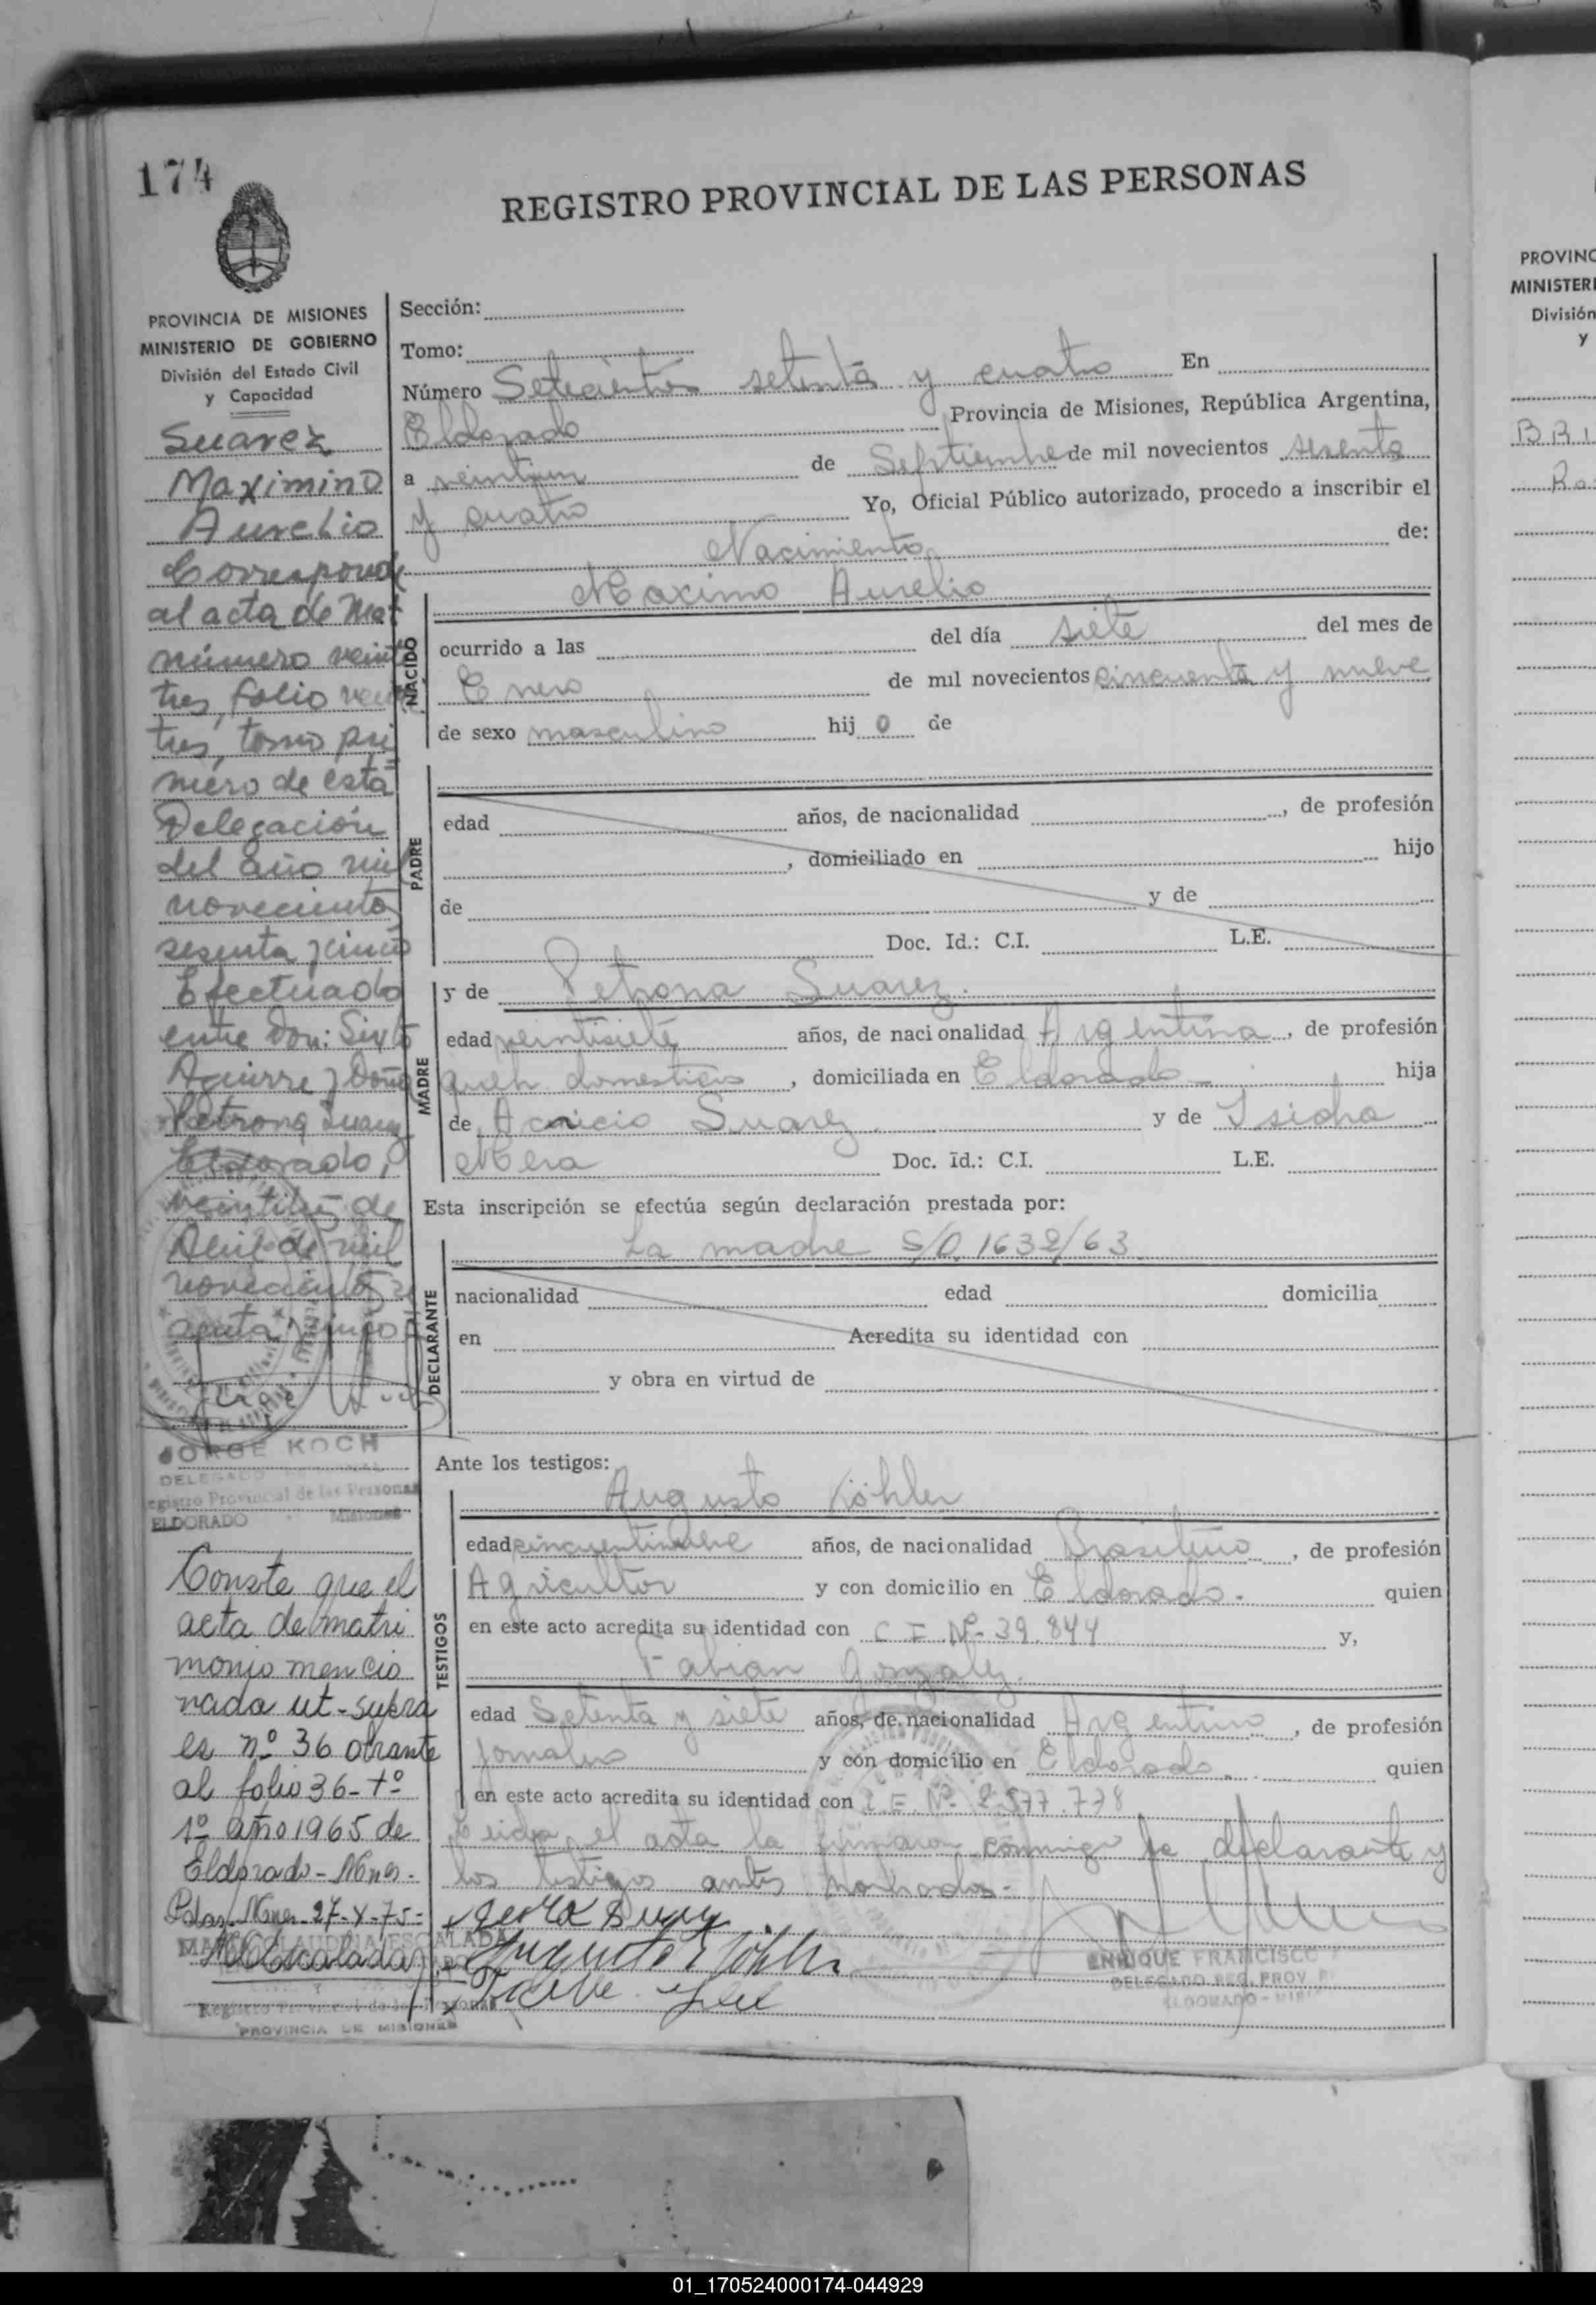 174
REGISTRO PROVINCIAL DE LAS PERSONAS
PROVINCIA DE MISIONES
MINISTERIO DE GOBIERNO
División del Estado Civil
y Capacidad
Suarez
Maximino
Aurelio
Corresponde
al acta de Mat
número veinti
tres, folio
tres, tomo pri
mero de esta
Delegación
del año mil
novecientos
sesenta y cinco
Efectuado
entre Don: Sixto
Aguirre y Doña
Petrona Suarez
Eldorado,
de
Abril de mil
novecientos se
senta y cinco
JORGE KOCH
DELEGADO
Registro Provincial de las Personas
ELDORADO Misiones
Conste que el
acta de matri
monio mencio
nada ut-supra
es nº 36 obrante
al folio 36-tº
1º año 1965 de
Eldorado-Mnes.
Pdas. Mnes. 27-X-75-
MCEscalada
Registro Provincial de las Personas
PROVINCIA DE MISIONES
Sección:
Tomo:
Número Setecientos setenta y cuatro En
Eldorado Provincia de Misiones, República Argentina,
a veintiun de Septiembre de mil novecientos sesenta
y cuatro Yo, Oficial Público autorizado, procedo a inscribir el
Nacimiento de:
Maximo Aurelio
NACIDO
ocurrido a las del día siete del mes de
Enero de mil novecientos cincuenta y nueve
de sexo masculino hij o de
PADRE
edad años, de nacionalidad , de profesión
, domiciliado en hijo
de y de
Doc. Id.: C.I. L.E.
MADRE
y de Petrona Suarez.
edad veintisiete años, de naci onalidad Argentina, de profesión
queh. domesticos, domiciliada en Eldorado - hija
de Acnicio Suarez y de Isidra
Mera Doc. Id.: C.I. L.E.
Esta inscripción se efectúa según declaración prestada por:
La madre S/O. 1632/63
DECLARANTE
nacionalidad edad domicilia
en Acredita su identidad con
y obra en virtud de
Ante los testigos:
TESTIGOS
Augusto Köhler
edad años, de nacionalidad Brasileño, de profesión
Agricultor y con domicilio en Eldorado. quien
en este acto acredita su identidad con C I Nº 39.844 y,
Fabian Gonzalez
edad Setenta y siete años, de nacionalidad Argentino, de profesión
Jornalero y con domicilio en Eldorado. quien
en este acto acredita su identidad con
Leida el acta la firmaron conmigo la declarante y
los testigos antes nombrados-
ENRIQUE FRANCISCO
DELEGADO REG. PROV.
ELDORADO - MIS
PROVINC
MINISTERI
División
y
BRI
Ra
01_170524000174-044929